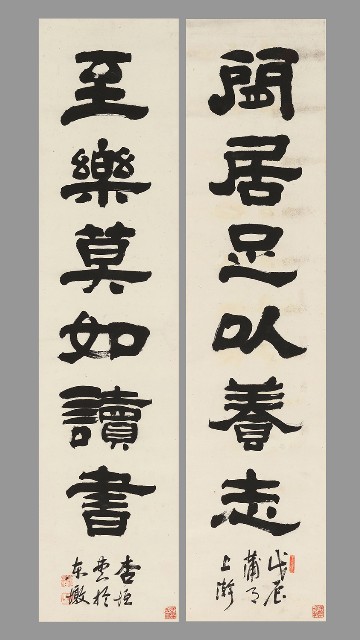 閒居足以養志
戊辰
蒲月
上澣
至樂莫如讀書
杏垣
書於